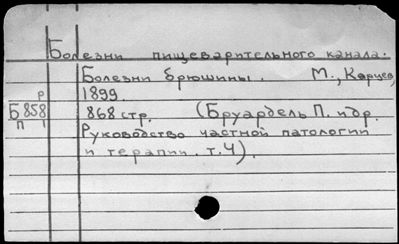 Болезни пищеварительного канала.
Болезни брюшины. М., Карцев,
1899.
868 стр. (Бруардель П. и др.
Руководство частной патологии
и терапии. т.4).
Р
Б 858
П 1